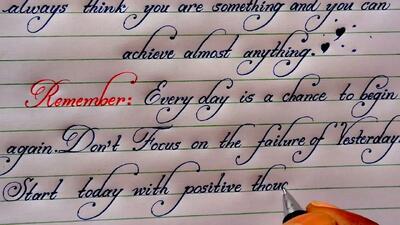 always think you are something and you can
achieve almost anything.
Remember: Every day is a chance to begin
again. Don't Focus on the failure of Yesterday.
Start today with positive thoug